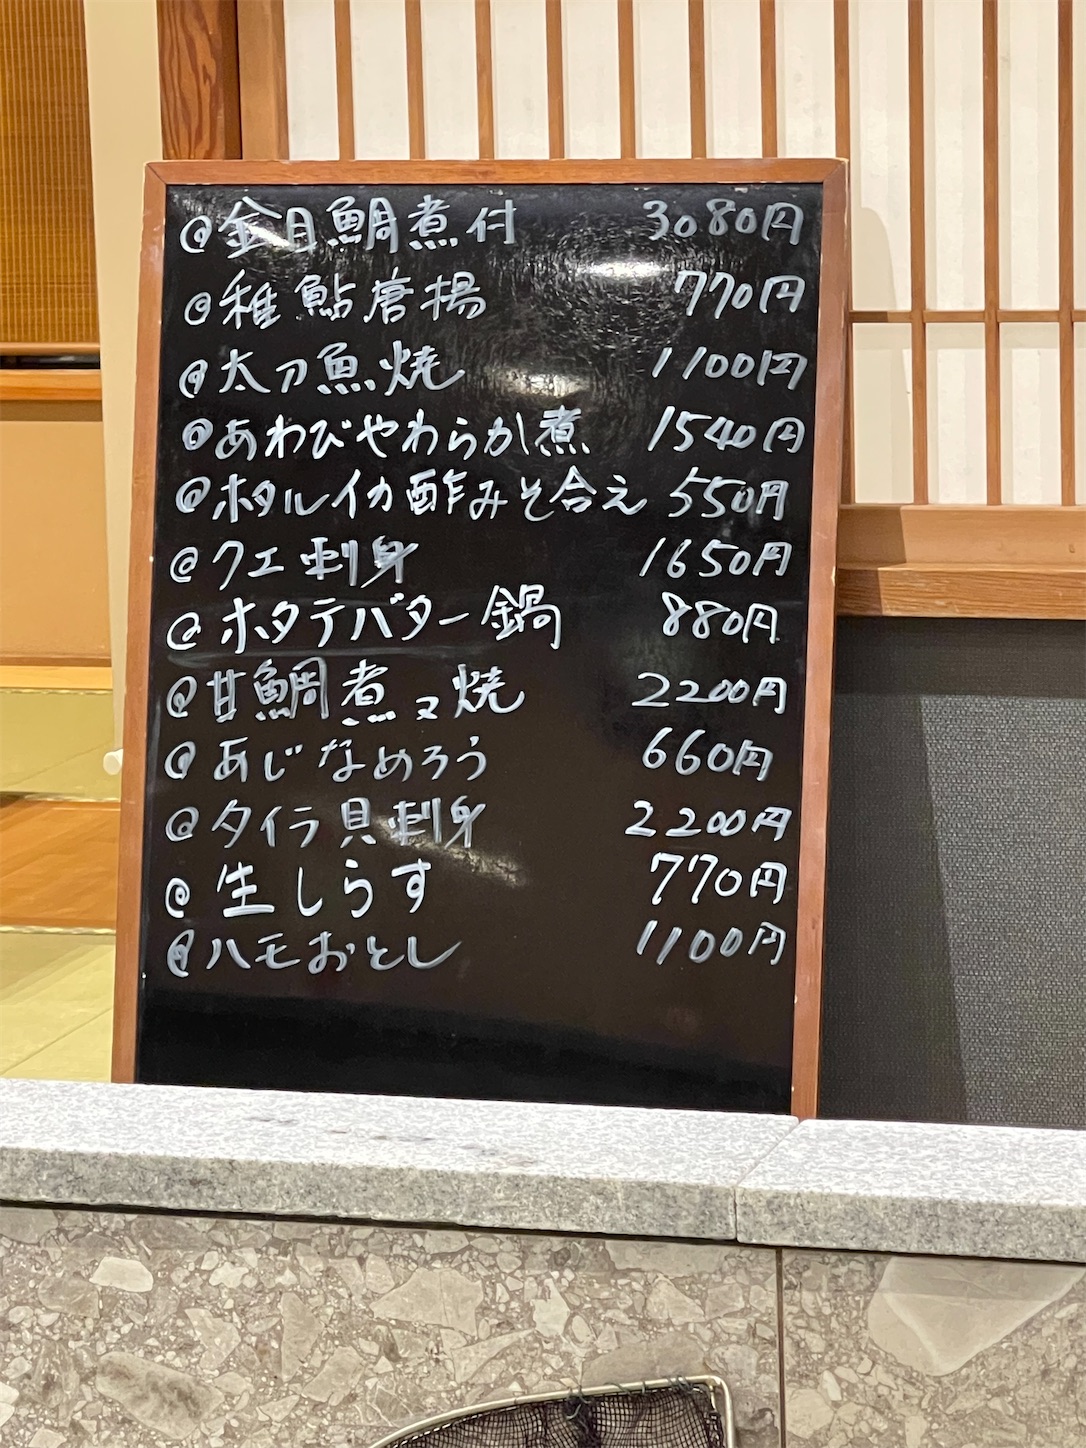 @金目鯛煮付 3080円
@稚鮎唐揚 770円
@太刀魚焼 1100円
@あわびやわらか煮 1540円
@ホタルイカ酢みそ合え 550円
@クエ刺身 1650円
@ホタテバター鍋 880円
@甘鯛煮又焼 2200円
@あじなめろう 660円
@タイラ貝刺身 2200円
@生しらす 770円
@ハモおとし 1100円